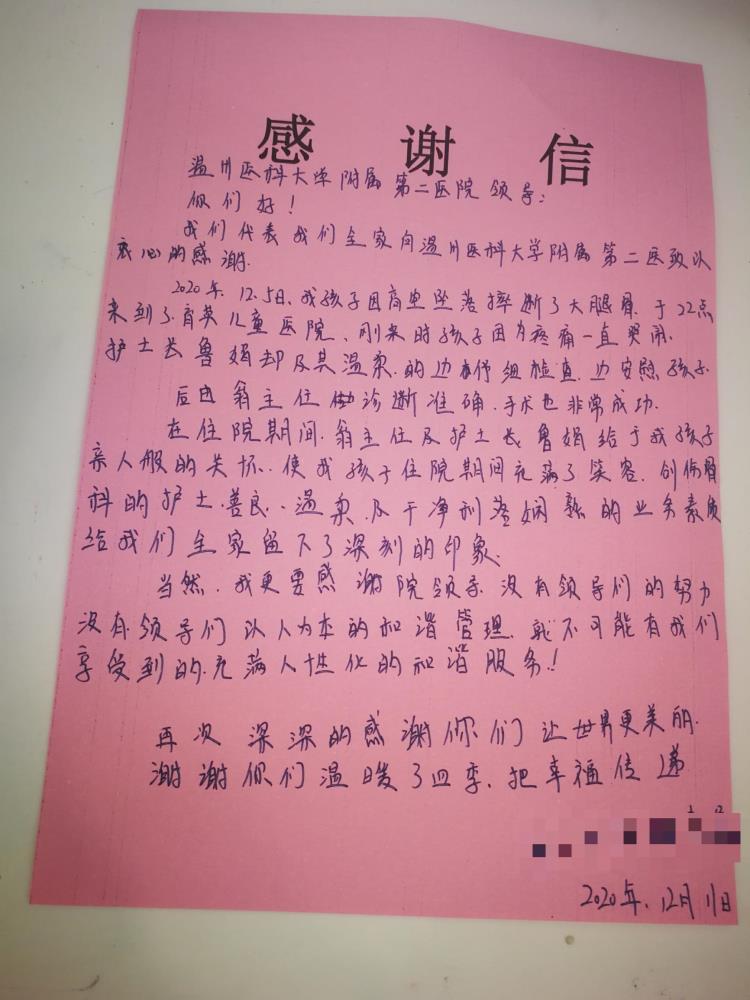 感谢信
温州医科大学附属第二医院领导:
你们好!
我们代表我们全家向温州医科大学附属第二医致以
衷心的感谢.
2020年.12.5日.我孩子因高空坠落摔断了大腿骨.于22点
来到了.育英儿童医院、刚来时孩子因为疼痛一直哭闹.
护士长鲁娟却及其温柔.的边仔细检查.边安慰孩子.
后由翁主任诊断准确.手术也非常成功.
在住院期间.翁主任及护士长鲁娟给于我孩子
亲人般的关怀.使我孩子住院期间充满了笑容.创伤骨
科的护士.善良.温柔.及干净利落娴熟的业务素质
给我们全家留下了深刻的印象.
当然.我更要感谢院领导.没有领导们的努力
没有.领导们以人为本的和谐管理.就不可能有我们
享受到的.充满人性化的和谐服务!
再次深深的感谢你们让世界更美丽.
谢谢你们温暖了四季、把幸福传递
2020年.12月11日